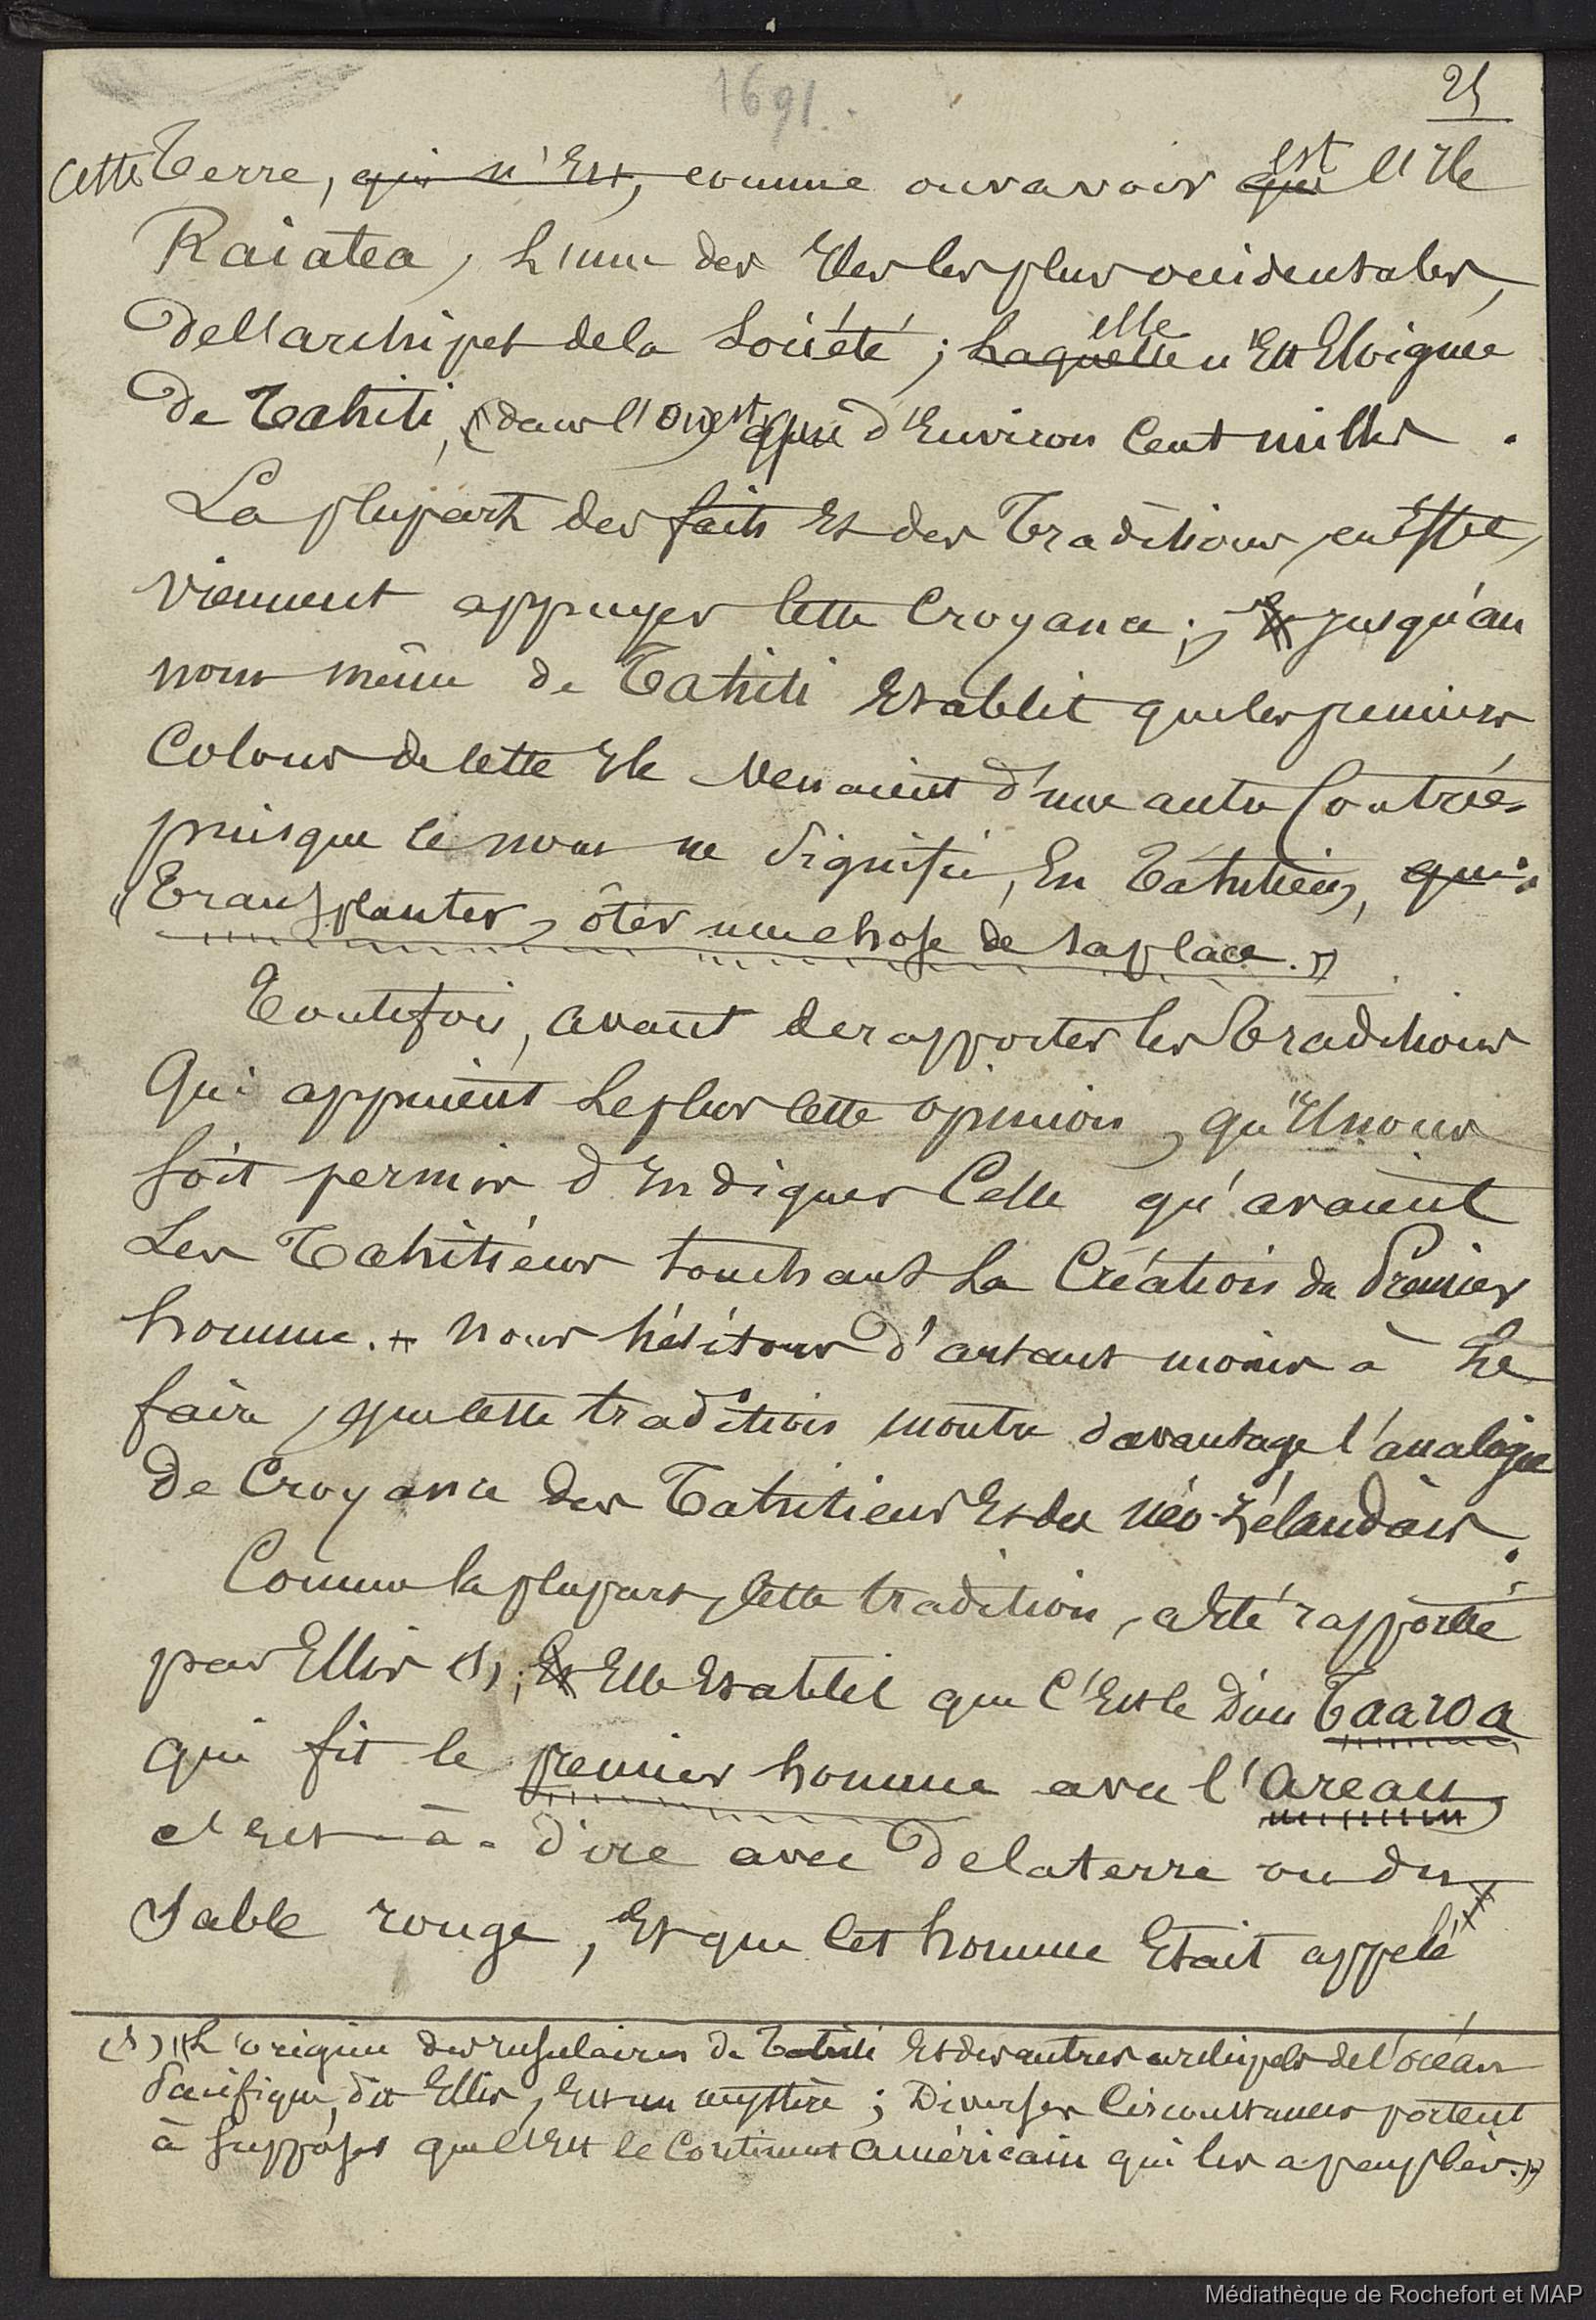 1691.
25
Cette Terre, qui n'Est, comme on va voir que est l'Ile
Raiatea, l'une des Iles les plus occidentales,
de l'archipel de la Société ; Laquelle elle n'Est Eloignée
de Tahiti, (dans l'Ouest) que d'Environ Cent milles.
La plupart des faits Et des Traditions, en Effet,
viennent appuyer Cette Croyance ; Et jusqu'au
nom même de Tahiti Etablit que les premiers
Colons de Cette Ile venaient d'une autre Contrée,
puisque ce nom ne signifie, En Tahitien, que :
"Transplanter, ôter une chose de sa place."
Toutefois, avant de rapporter les Traditions
Qui appuient Le plus Cette opinion, qu'Il nous
soit permis d'Indiquer Celle qu'avaient
Les Tahitiens touchant La Création du Premier
homme. + Nous hésitons d'autant moins à Le
faire, que cette tradition montre davantage l'analogie
de Croyance des Tahitiens Et des Néo-Zélandais.
Comme la plupart, Cette tradition, a Eté rapportée
par Ellis (1) ; Et Elle Etablit que C'Est le Dieu Taaroa
qui fit le premier homme avec l'araeau,
c'Est-à-dire avec de la terre ou du
Sable rouge, Et que Cet homme Etait appelé
(1) "L'origine des Insulaires de Tahiti Et des autres archipels de l'océan
Pacifique, dit Ellis, Est un mystère ; Diverses Circonstances portent
à supposer que c'Est le Continent américain qui les a peuplés."
Médiathèque de Rochefort et MAP